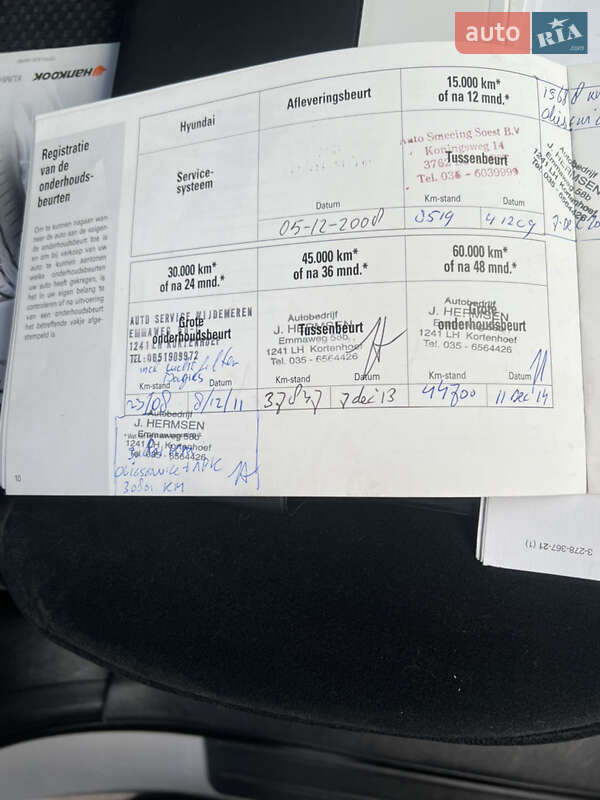 auto RIA .com
HANKOOK
Registratie
van de
onderhouds-
beurten
Om te kunnen nagaan wan-
neer de auto aan de volgen-
de onderhoudsbeurt toe is
en om bij verkoop van uw
auto te kunnen aantonen
welke onderhoudsbeurten
uw auto heeft gekregen, is
het in uw eigen belang te
controleren of na uitvoering
van een onderhoudsbeurt
het betreffende vakje afge-
stempeld is.
10
Hyundai
Afleveringsbeurt
15.000 km*
of na 12 mnd.*
Service-
systeem
Auto Smeeing Soest B.V
Koningsweg 14
Tussenbeurt
Tel. 035 - 6039999
Datum
Km-stand
Datum
05-12-2008
8519
4 12 09
Autobedrijf
J. HERMSEN
Emmaweg 58b
1241 LH Kortenhoef
Tel. 035 -
30.000 km*
of na 24 mnd.*
45.000 km*
of na 36 mnd.*
60.000 km*
of na 48 mnd.*
AUTO SERVICE WIJDEMEREN
EMMAWEG
Grote
onderhoudsbeurt
1241 LH KORTENHOEF
TEL:0651909972
Km-stand
Datum
8/12/11
Autobedrijf
J. HERMSEN
Emmaweg 58b,
Tussenbeurt
1241 LH Kortenhoef
Tel. 035 - 6564426
Km-stand
Datum
37837
7 dec 13
Autobedrijf
J. HERMSEN
Grote
onderhoudsbeurt
1241 LH Kortenhoef
Tel. 035 - 6564426
Km-stand
Datum
44700
11 Dec 14
Autobedrijf
J. HERMSEN
Emmaweg 58b
1241 LH Kortenhoef
Tel. 035 - 6564426
KM
3-278-367-21 (1)